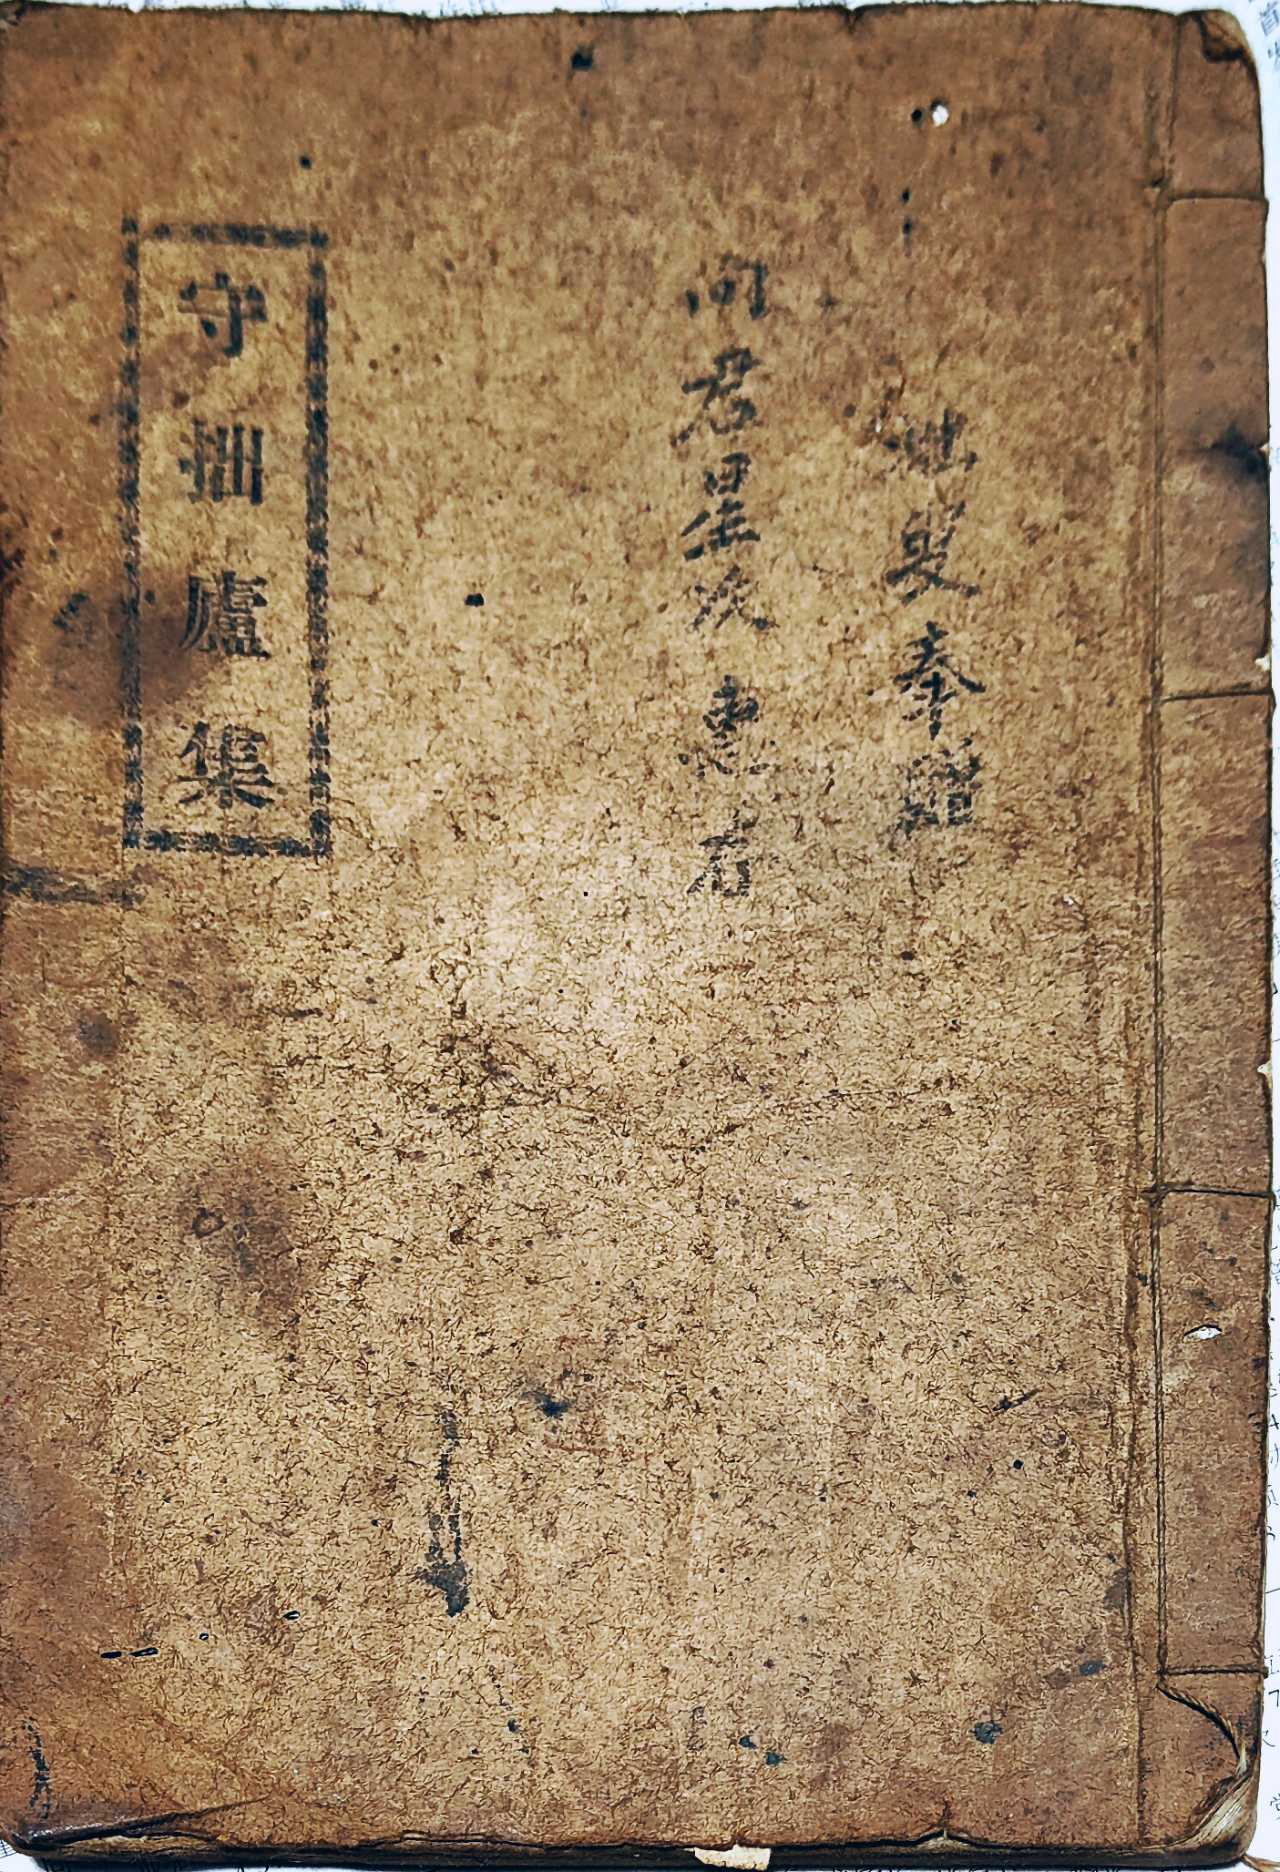 拙叟奉贈
向君星次 惠存
守拙廬集